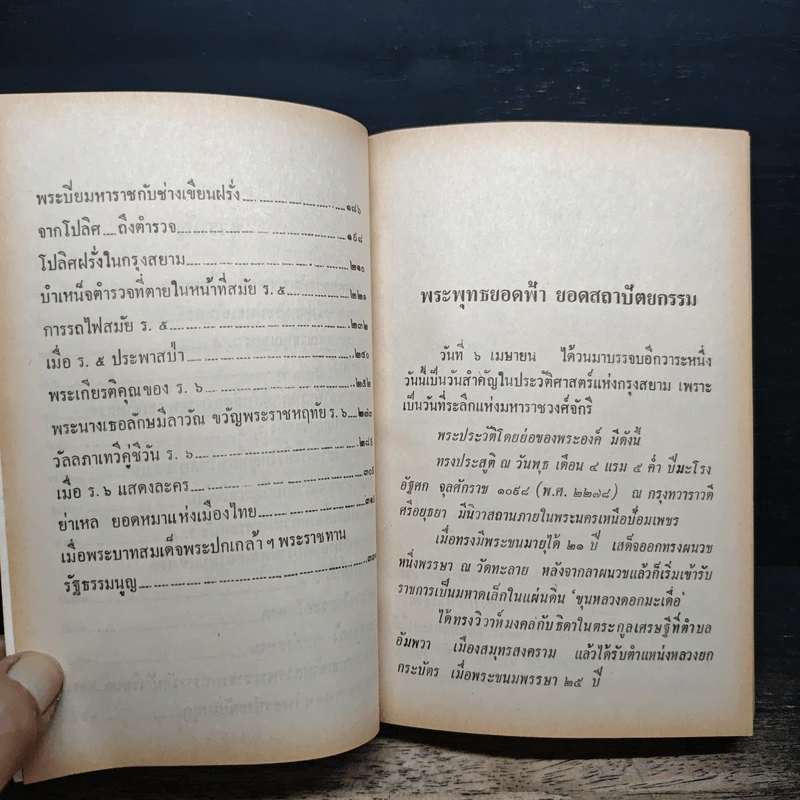 พระบียมหาราชกับช่างเขียนฝรั่ง ๑๘๖
จากโปลิศ ถึงตำรวจ ๑๙๘
โปลิศฝรั่งในกรุงสยาม ๒๑๐
บำเหน็จตำรวจที่ตายในหน้าที่สมัย ร. ๕ ๒๒๑
การรถไฟสมัย ร. ๕ ๒๓๒
เมื่อ ร. ๕ ประพาสป่า ๒๔๐
พระเกียรติคุณของ ร. ๖ ๒๕๒
พระนางเธอลักษมีลาวัณ ขวัญพระราชหฤทัย ร. ๖
วัลลภาเทวีคู่ชีวัน ร. ๖
เมื่อ ร. ๖ แสดงละคร
ย่าเหล ยอดหมาแห่งเมืองไทย
เมื่อพระบาทสมเด็จพระปกเกล้า ฯ พระราชทาน
รัฐธรรมนูญ
พระพุทธยอดฟ้า ยอดสถาปัตยกรรม
วันที่ ๖ เมษายน ได้วนมาบรรจบอีกวาระหนึ่ง
วันนี้เป็นวันสำคัญในประวัติศาสตร์แห่งกรุงสยาม เพราะ
เป็นวันที่ระลึกแห่งมหาราชวงศ์จักรี
พระประวัติโดยย่อของพระองค์ มีดังนี้
ทรงประสูติ ณ วันพุธ เดือน ๔ แรม ๕ ค่ำ ปีมะโรง
อัฐศก จุลศักราช ๑๐๙๘ (พ.ศ. ๒๒๗๘) ณ กรุงทวาราวดี
ศรีอยุธยา มีนิวาสถานภายในพระนครเหนือป้อมเพชร
เมื่อทรงมีพระชนมายุได้ ๒๑ ปี เสด็จออกทรงผนวช
หนึ่งพรรษา ณ วัดทะลาย หลังจากลาผนวชแล้วก็เริ่มเข้ารับ
ราชการเป็นมหาดเล็กในแผ่นดิน 'ขุนหลวงดอกมะเดื่อ'
ได้ทรงวิวาห์มงคลกับธิดาในตระกูลเศรษฐีที่ตำบล
อัมพวา เมืองสมุทรสงคราม แล้วได้รับตำแหน่งหลวงยก
กระบัตร เมื่อพระชนมพรรษา ๒๕ ปี